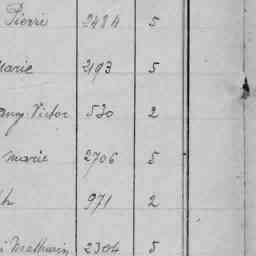 Pierre 2484 5
Marie 2193 5
Victor 530 2
Marie 2706 5
971 2
Mathurin 2304 5